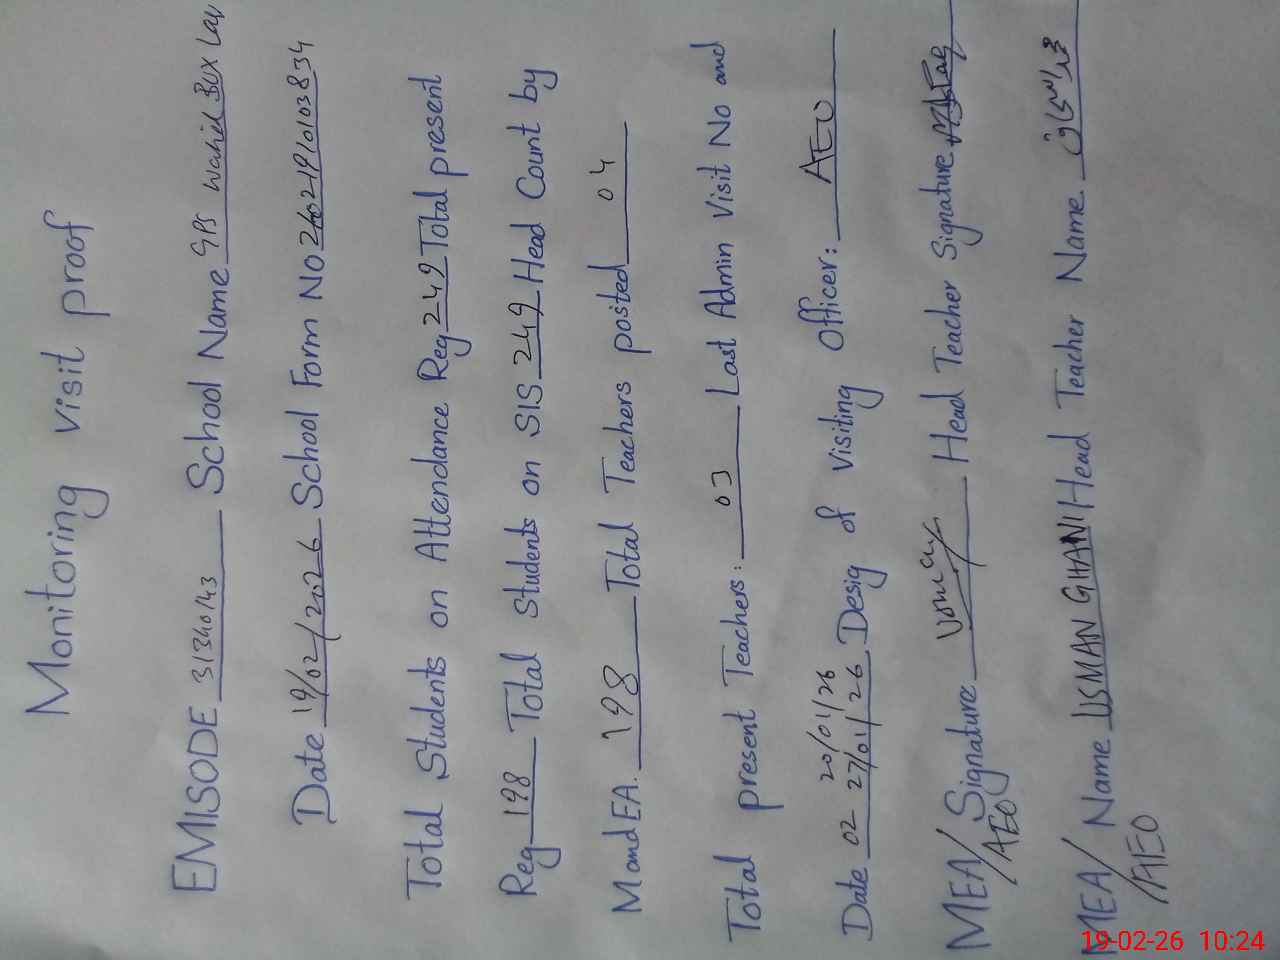 Monitoring visit proof
EMISODE 31340143 School Name GPS Wahid Bux Lar
Date 19/02/2026 School Form No
Total Students on Attendance Reg 249 Total present
Reg 198 Total Students on SIS 249 Head Count by
M and EA. 198 Total Teachers posted 04
Total present Teachers: 03 Last Admin Visit No and
20/01/26
Date 02 27/01/26 Desig of Visiting Officer: AEO
MEA/ Signature Head Teacher Signature
AEO
MEA/ Name USMAN GHANI Head Teacher Name.
AEO
19-02-26 10:24